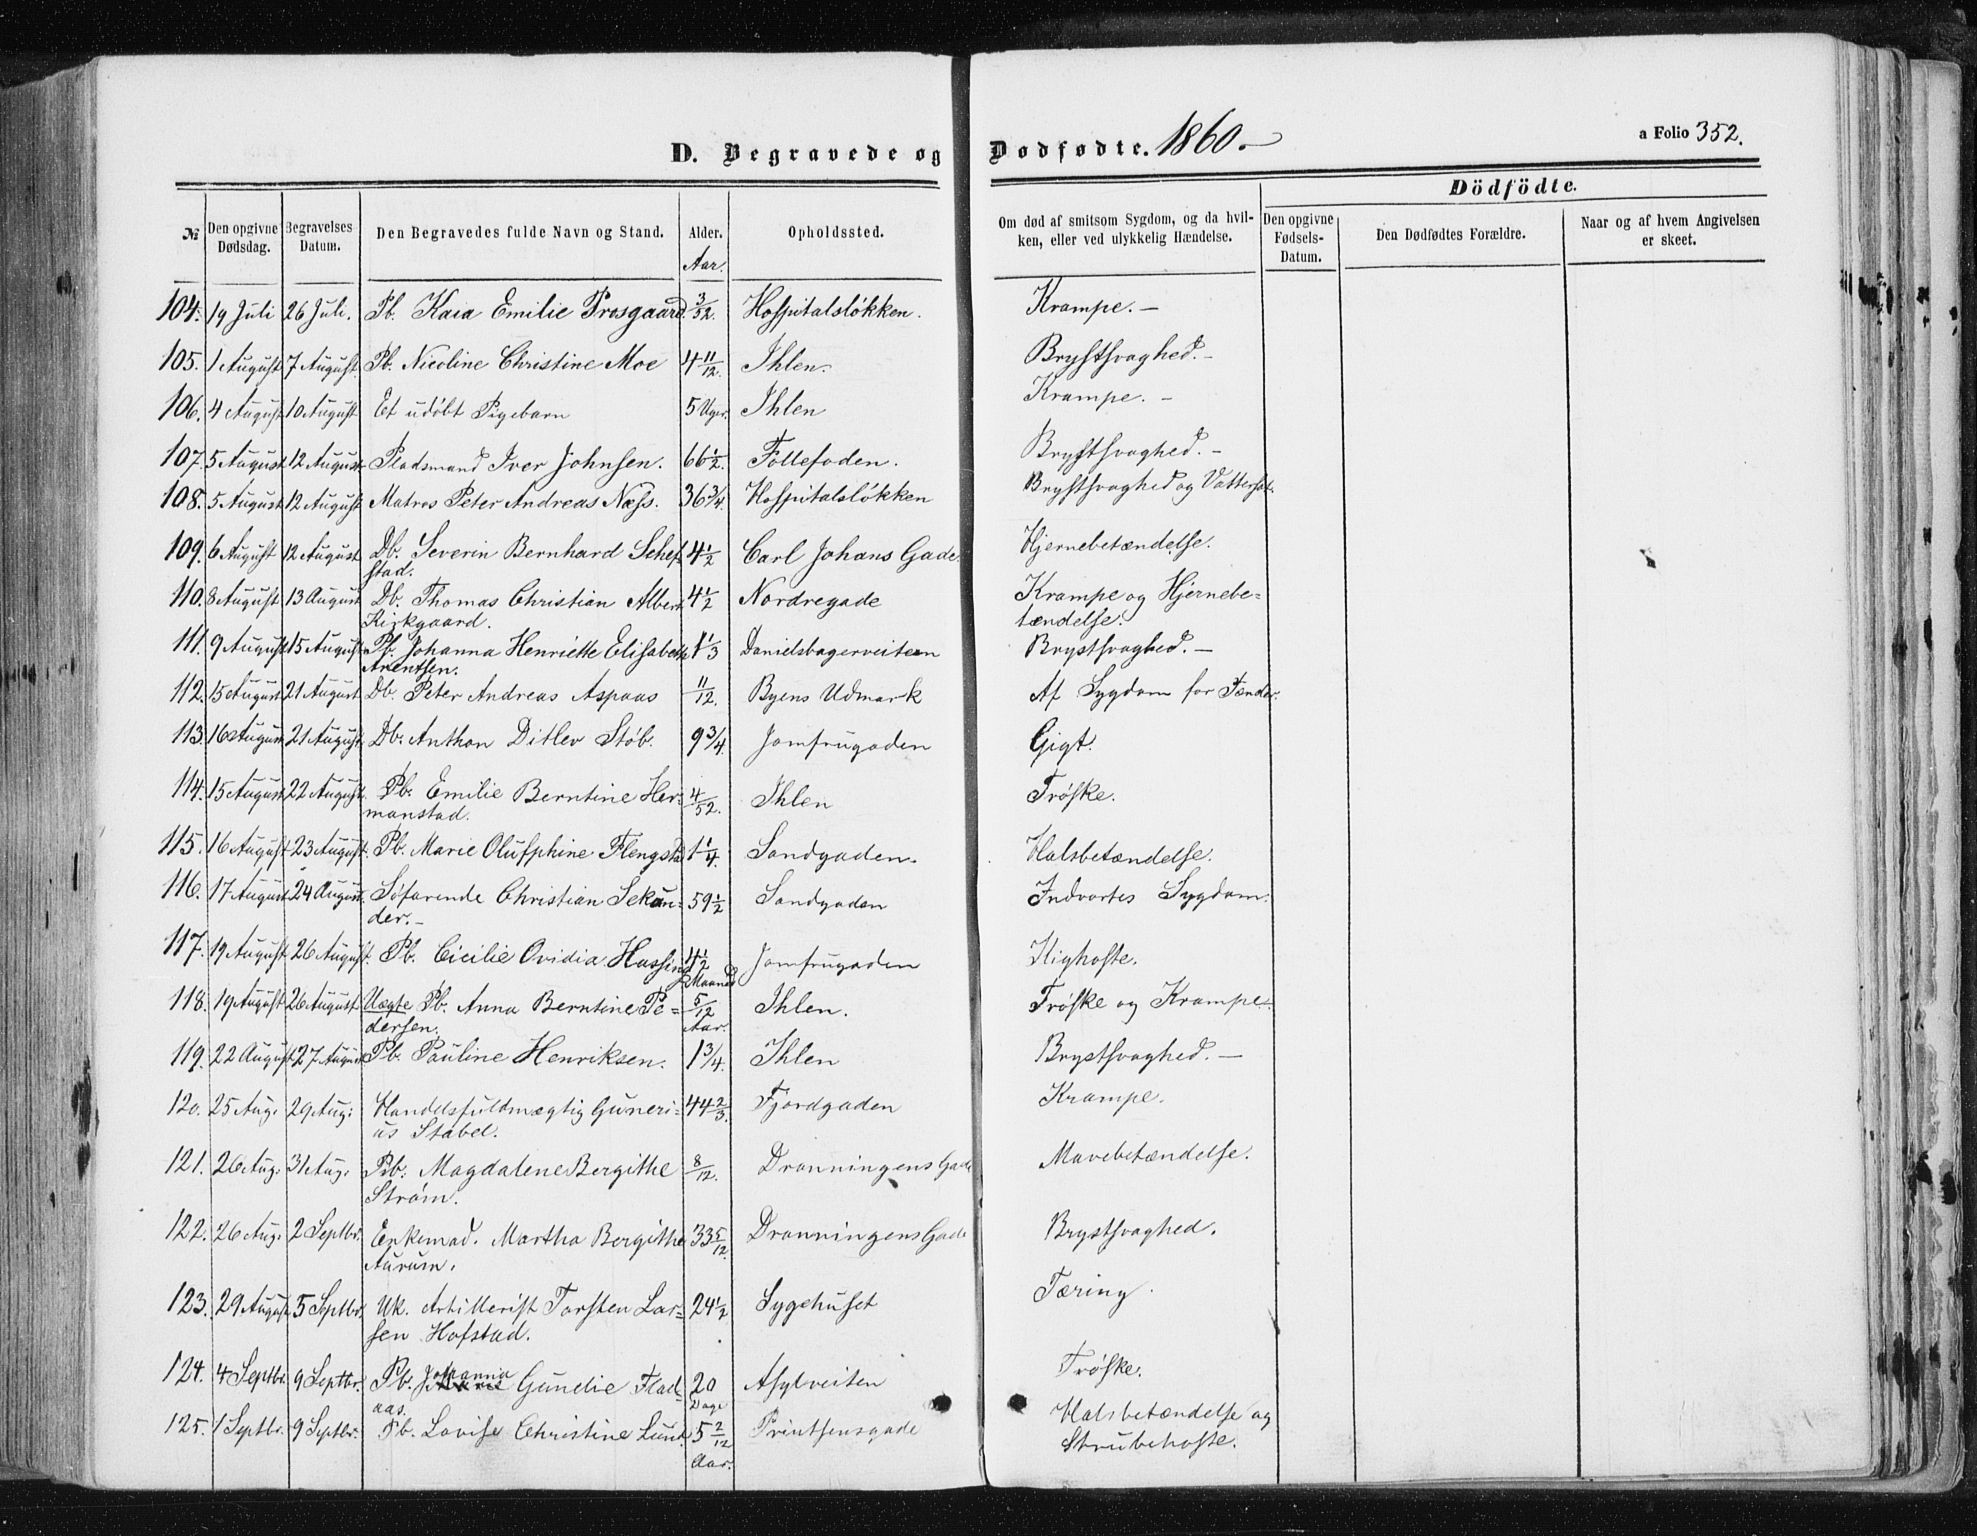 D. Begravede og Dødfødte. 1860.–
a Folio 352.
Dödfödte.
№ Den opgivne Dødsdag. Begravelses Datum. Den Begravedes fulde Navn og Stand. Alder. Opholdssted. Om død af smitsom Sygdom, og da hvil- Den opgivne Fødsels-Datum. Den Dødfødtes Forældre. Naar og af hvem Angivelsen er skeet.
ken, eller ved ulykkelig Hændelse.
Aar.
104. 19 Juli 26 Juli. Pb. Kaia Emilie Prosgaard 3/52. Hospitalsløkken. Krampe. –
105. 1 August 7 August. Pb. Nicoline Christine Moe 4 11/12. Ihlen. Brystsvaghed. –
106. 4 August 10 August Et udøbt Pigebarn 5 Uger. Ihlen Krampe. –
107. 5 August 12 August Pladsmand Iver Johnsen. 66 1/2. Brystsvaghed. –
108. 5 August 12 August Matros Peter Andreas Næss. 36 3/4. Hospitalsløkken Brystsvaghed og Vattersot.
109. 6 August 12 August Db. Severin Bernhard Schef- 4 1/2 Carl Johans Gade. Hjernebetændelse.
stad.
110. 8 August 13 August Db. Thomas Christian Albert 4 1/2 Nordregade Krampe og Hjernebe=
Kirkgaard. tændelse.
111. 9 August 15 August Pb. Johanna Henriette Elisabeth 1 1/3 Danielsbagerveiten Brystsvaghed. –
Arentsen.
112. 15 August 21 August Db. Peter Andreas Aspaas 11/12. Byens Udmark Af Sygdom for Tænder.
113. 16 August 21 August Db. Anthon Ditlev Støb. 9 3/4. Jomfrugaden Gigt.
114. 15 August 22 August Pb. Emilie Berntine Her- 4/52. Ihlen Trøske.
manstad.
115. 16 August 23 August. Pb. Marie Olufphine Flengstad 1 1/4. Sandgaden. Halsbetændelse.
116. 17 August 24 August Søfarende Christian Sekun= 59 1/2 Sandgaden Indvortes Sygdom.
der.–
117. 19 August 26 August. Pb. Cicilie Ovidia Hassing 4 1/2 Maaned Jomfrugaden Kighoste.
118. 19 August 26 August Uægte Pb. Anna Berntine Pe= 5/12 Ihlen. Trøske og Krampe.
dersen. Aar.
119. 22 August 27 August Pb. Pauline Henriksen. 1 3/4. Ihlen Brystsvaghed. –
120. 25 Aug: 29 Aug: Handelsfuldmægtig Guneri- 44 2/3. Fjordgaden Krampe.
us Stabel.
121. 26 Aug. 31 Aug. Pb. Magdalene Bergithe 8/12. Dronningens Gade Mavebetændelse.
Strøm.
122. 26 Aug. 2 Septbr. Enkemad. Martha Bergithe 33 5/12. Dronningens Gade Brystsvaghed.
Aurum.
123. 29 August 5 Septbr. Uk. Artillerist Torsten Lar= 24 1/2 Sygehuset Tæring.
sen Hofstad.
124. 4 Septbr. 9 Septbr. Pb. Johanna Gunelie Flad- 20 Dage Asylveiten Trøske.
aas.
125. 1 Septbr. 9 Septbr. Pb. Lovise Christine Lund. 5 2/12 Aar. Printsensgade Halsbetændelse og
Strubehoste.